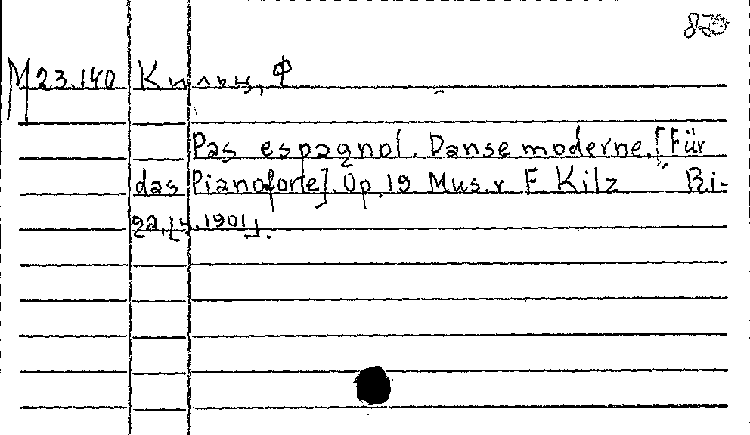 М 23.140 Кильц, Ф
Pas espagnol. Danse moderne. [Für
das Pianoforte]. Op. 19 Mus. v F. Kilz Ri-
ga, 1901.